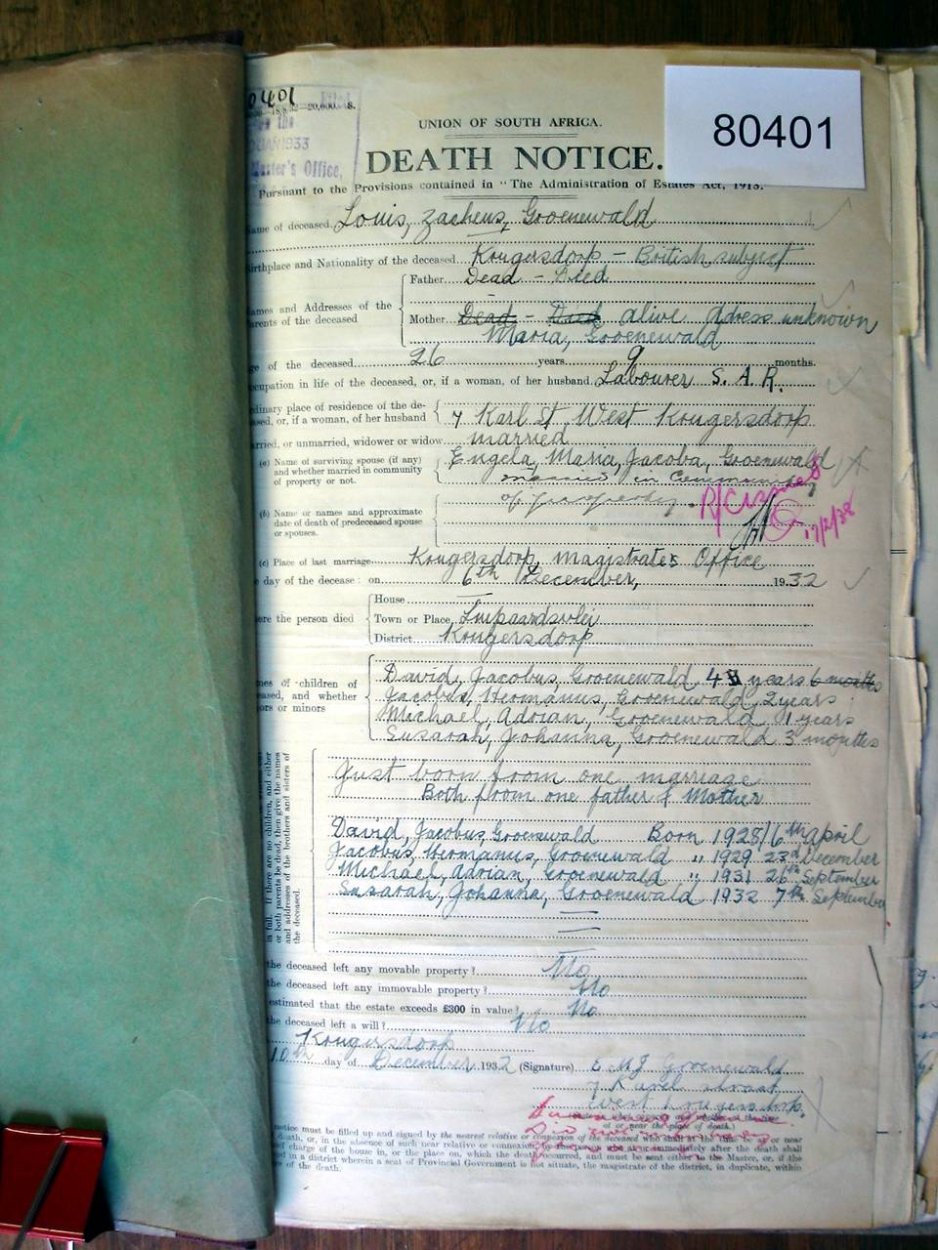 0401
80401
1933
Master's Office,
UNION OF SOUTH AFRICA.
DEATH NOTICE.
Pursuant to the Provisions contained in "The Administration of Estates Act, 1913.
ame of deceased Louis, Zacheus, Groenewald
Birthplace and Nationality of the deceased Krugersdorp - British subject
Father Dead - Died
ames and Addresses of the
arents of the deceased
Mother Dead - Died alive Adress unknown
Maria, Groenewald
ge of the deceased 26 years 9 months.
ccupation in life of the deceased, or, if a woman, of her husband Labourer S. A. R.
dinary place of residence of the de-
ased, or, if a woman, of her husband
7 Karl St. West Krugersdorp
arried, or unmarried, widower or widow married
(a) Name of surviving spouse (if any)
and whether married in community
of property or not.
Engela, Maria, Jacoba, Groenewald
married in Community
of property
17/2/38
(b) Name or names and approximate
date of death of predeceased spouse
or spouses.
(c) Place of last marriage Krugersdorp, Magistrates Office
e day of the decease: on 6th December, 1932
House
ere the person died
Town or Place, Luipaardsvlei
District Krugersdorp
mes of children of
eased, and whether
ors or minors
David, Jacobus, Groenewald 4 years 6 months
Jacobus, Hermanus, Groenewald, 2 years
Michael, Adrian, Groenewald 1 years
Susarah, Johanna, Groenewald 3 months
in full. If there are no children, and either
or both parents be dead, then give the names
and addresses of the brothers and sisters of
the deceased.
Just born from one marriage
Both from one father & Mother
David, Jacobus, Groenewald Born 1928/6th April
Jacobus, Hermanus, Groenewald " 1929 23rd December
Michael, Adrian, Groenewald " 1931 26th September
Susarah, Johanna, Groenewald 1932 7th September
the deceased left any movable property? No
the deceased left any immovable property? No
estimated that the estate exceeds £300 in value? No
the deceased left a will? No
Krugersdorp
10th day of December 1932 (Signature) E M J Groenewald
7 Karel straat
West Krugersdorp,
notice must be filled up and signed by the nearest relative or connexion of the deceased who shall
death, or, in the absence of such near relative or connexion, immediately after the death shall
charge of the house in, or the place on, which the death occurred, and must be sent either to the Master, or, if the
ed in a district wherein a seat of Provincial Government is not situate, the magistrate of the district, in duplicate, within
s of the death.